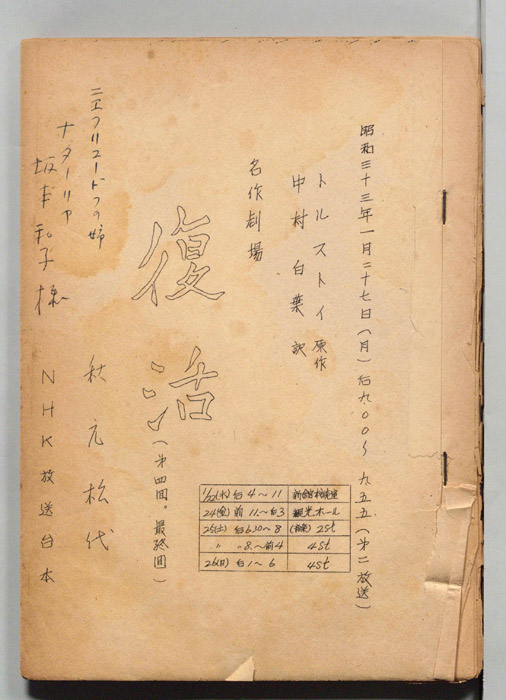 昭和三十三年一月二十七日(月)后九.〇〇〜九.五五(第二放送)
トルストイ 原作
中村白葉 訳
名作劇場
復活
(第四回。最終回)
秋元松代
NHK放送台本
ニエフリュードフの姉
ナターリヤ
坂本和子様
1/22(水) 后4〜11
24(金) 前11〜后3 観光ホール
25(土) 后6.30〜8 2st
〃 〃8.〜前4 4st
26(日) 后1〜6 4st